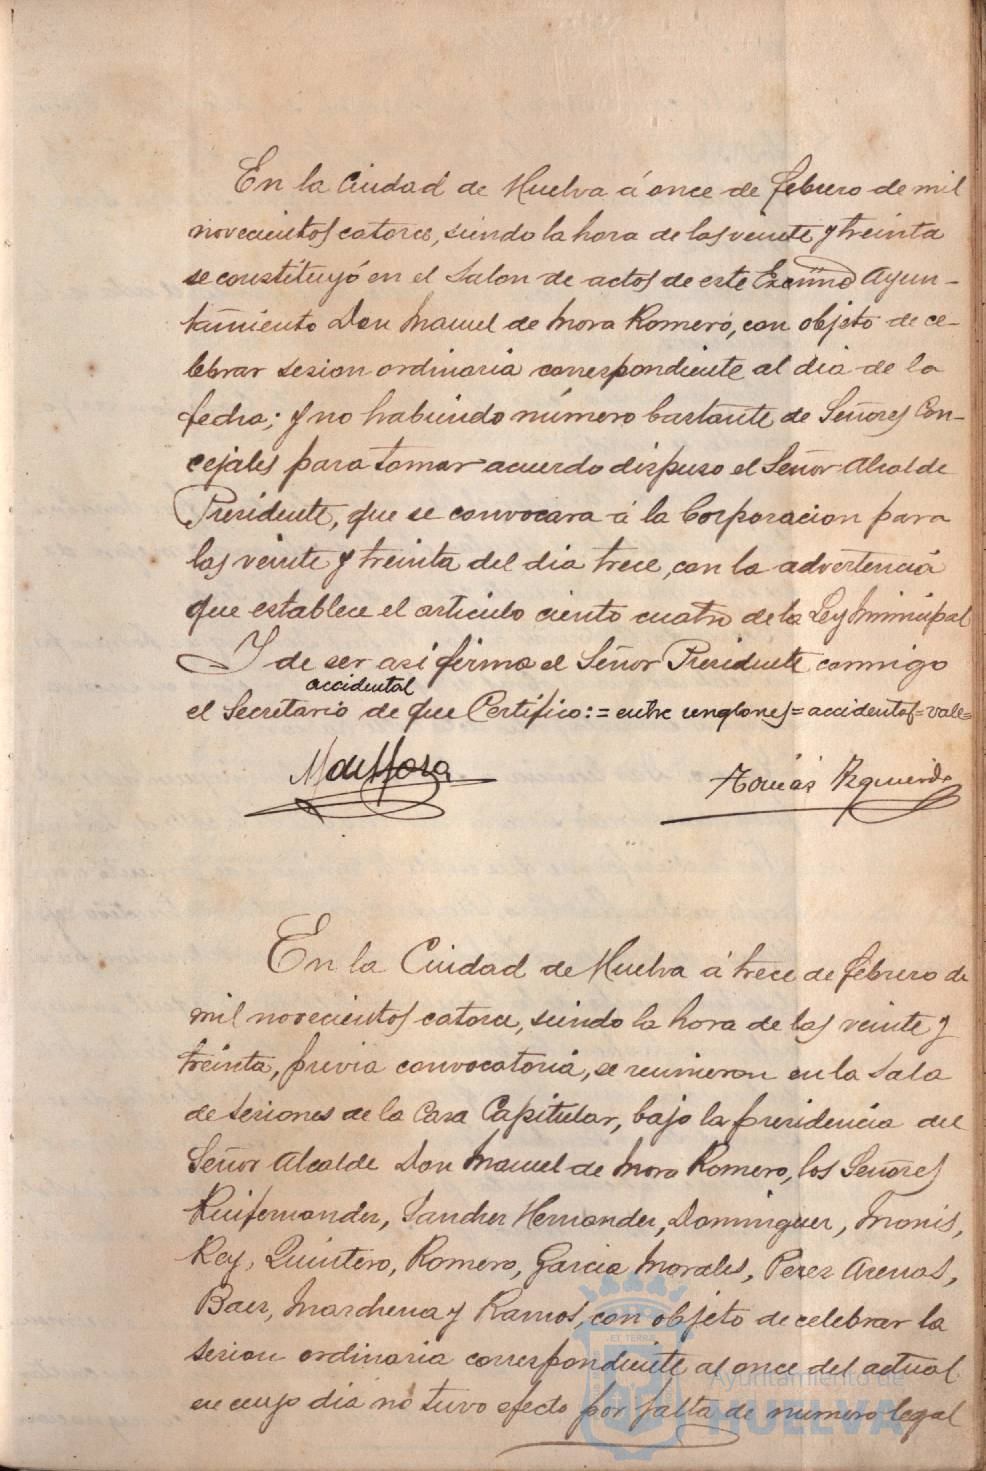 En la Ciudad de Huelva á once de febrero de mil
novecientos catorce, siendo la hora de las veinte y treinta
se constituyó en el Salon de actos de este Excmo Ayun-
tamiento Don Manuel de Mora Romero, con objeto de ce-
lebrar sesion ordinaria correspondiente al dia de la
fecha; y no habiendo número bastante de Señores Con-
cejales para tomar acuerdo dispuso el Señor Alcalde
Presidente, que se convocara á la Corporacion para
las veinte y treinta del dia trece, con la advertencia
que establece el articulo ciento cuatro de la Ley Municipal
Y de ser asi firma el Señor Presidente conmigo
accidental
el Secretario de que Certifico:= entre renglones=accidental=vale=
M de Mora
Tomás Yzquierdo
En la Ciudad de Huelva á trece de febrero de
mil novecientos catorce, siendo la hora de las veinte y
treinta, previa convocatoria, se reunieron en la Sala
de sesiones de la Casa Capitular, bajo la presidencia del
Señor Alcalde Don Manuel de Mora Romero, los Señores
Ruifernandez, Sanchez Hernandez, Dominguez, Monis,
Rey, Quintero, Romero, Garcia Morales, Perez Arenas,
Baez, Marchena y Ramos, con objeto de celebrar la
sesion ordinaria correspondiente al once del actual
en cuyo dia no tuvo efecto por falta de número legal
ET TERRÆ
Ayuntamiento de
HUELVA